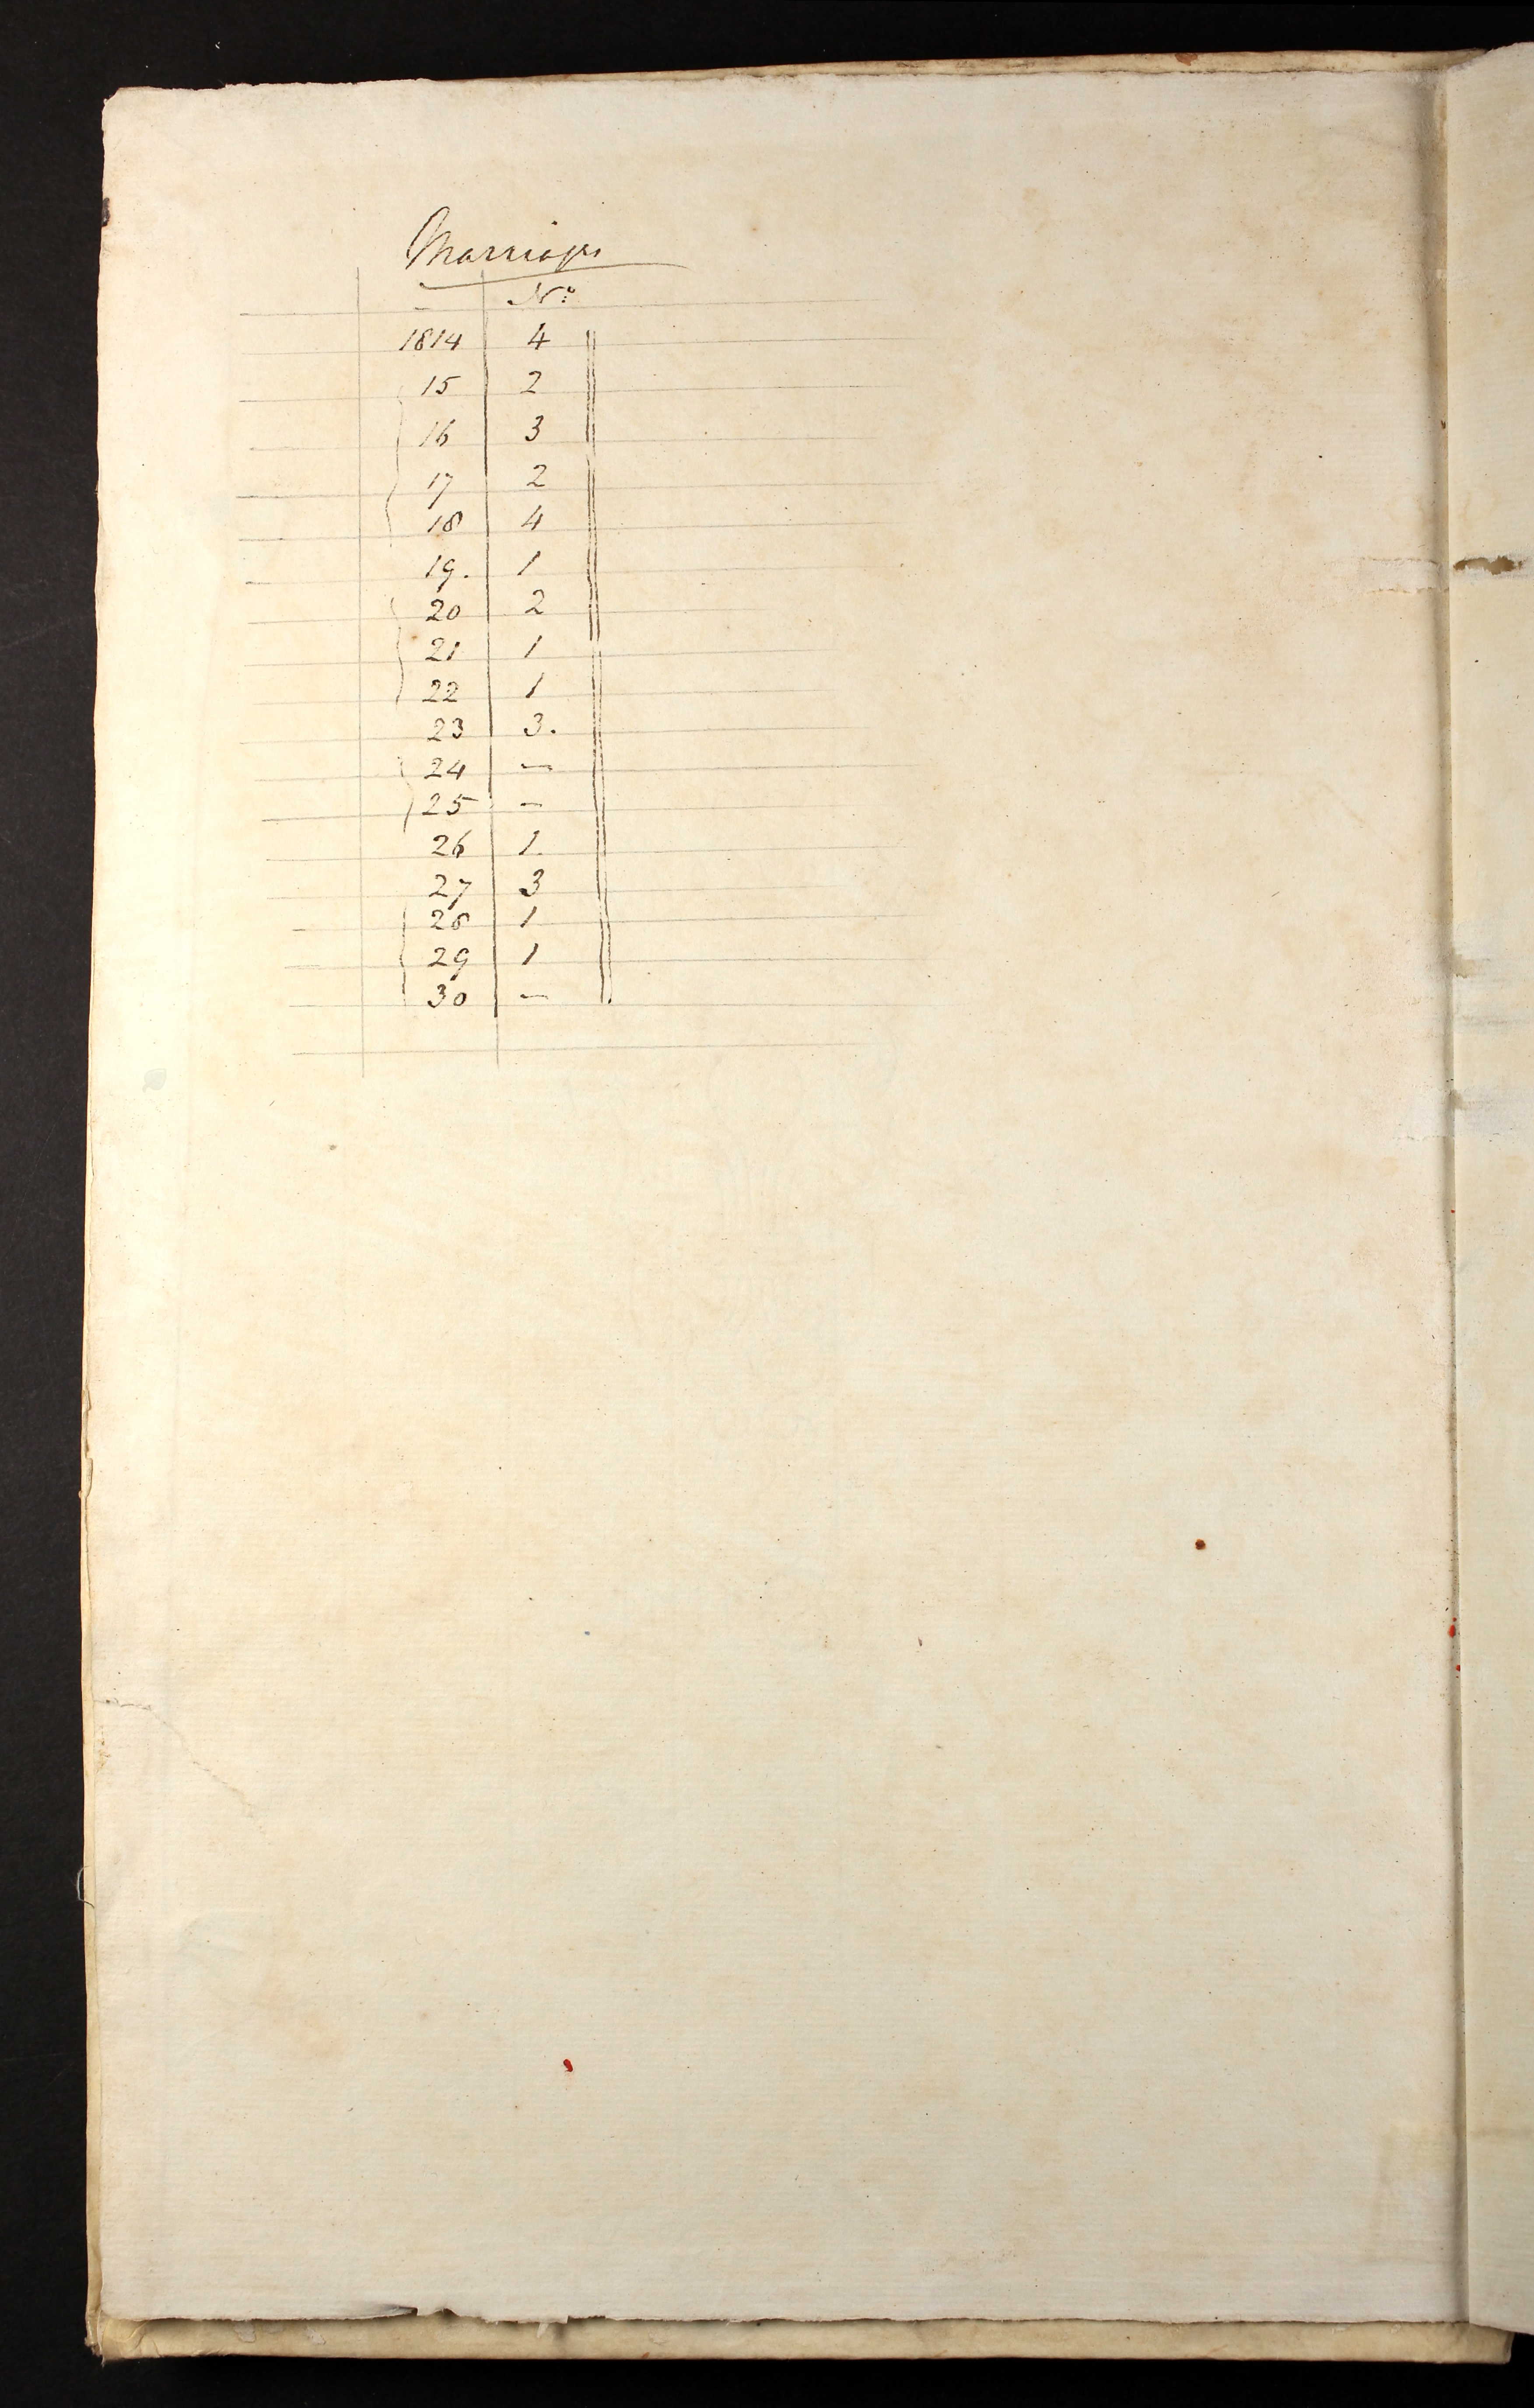 Marriages
Nº
1814 4
15 2
16 3
17 2
18 4
19. 1
20 2
21 1
22 1
23 3.
24 —
25 —
26 1
27 3
28 1
29 1
30 —